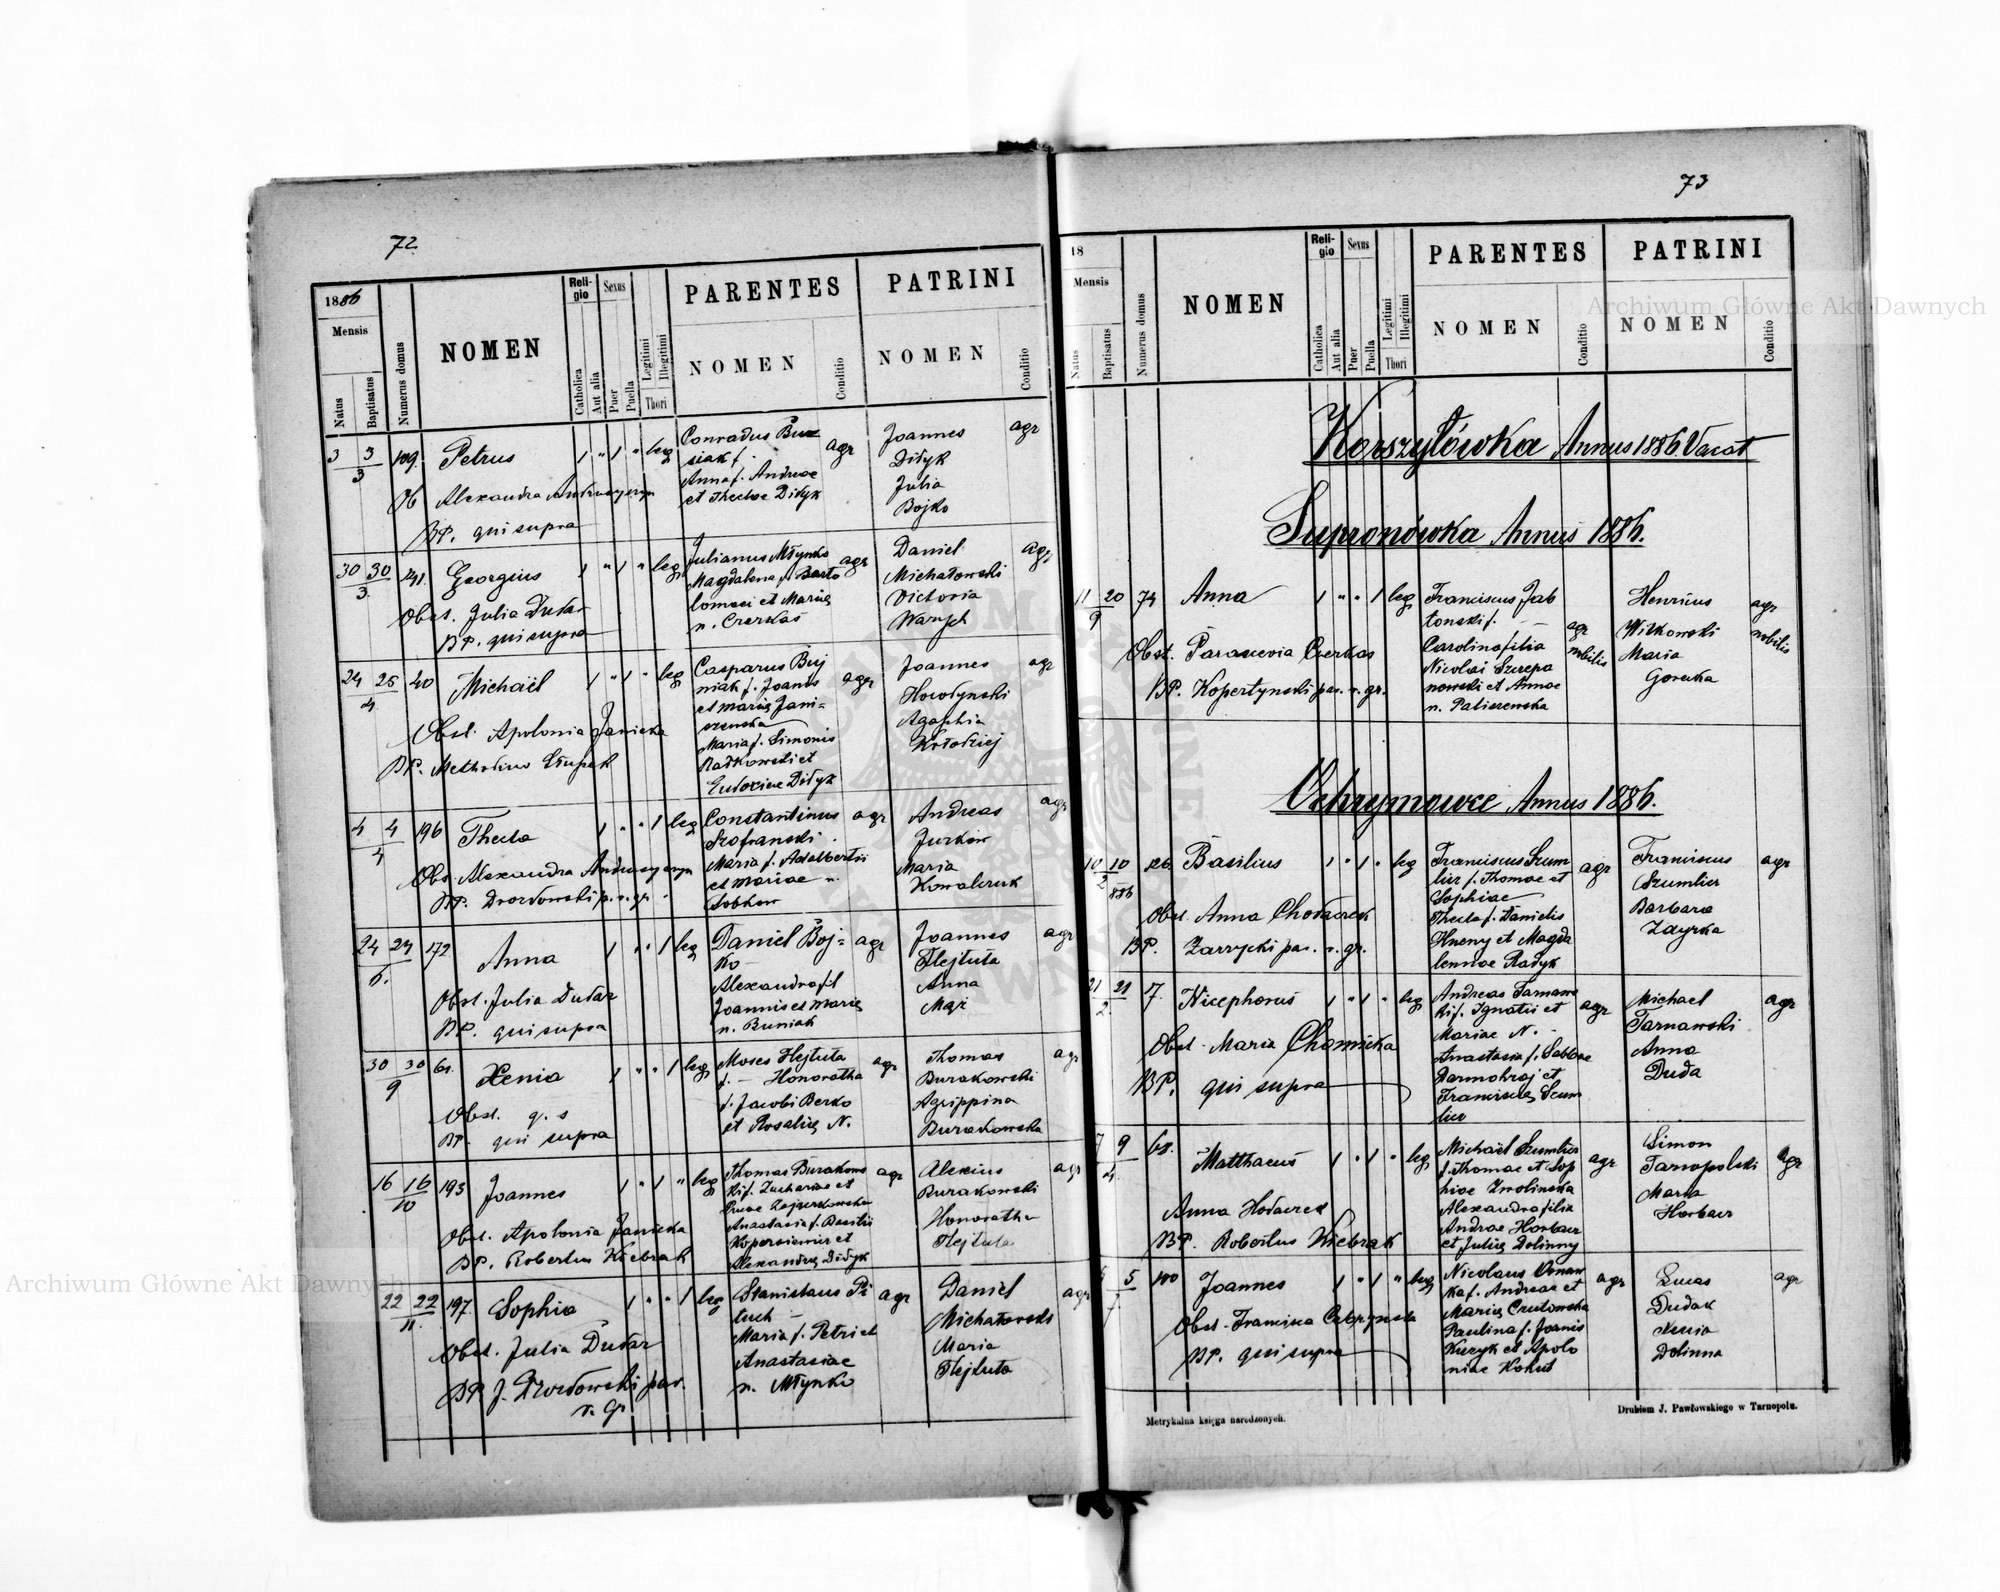 72
1886
Mensis
Natus
Baptisatus
Numerus domus
NOMEN
Reli-
gio
Catholica
Aut alia
Sexus
Puer
Puella
Legitimi
Illegitimi
Thori
PARENTES
NOMEN
Conditio
PATRINI
NOMEN
Conditio
3 3/3 109. Petrus 1 " 1 " leg
Ob Alexandra
BP. qui supra
Conradus Bu=
siak f.
Anna f. Andreae
et Theclae Didyk
agr
Joannes
Didyk
Julia
Bojko
agr
30 30/3 241. Georgius 1 " 1 " leg
Obst. Julia Dudar
BP. qui supra
Julianus Młynko
Magdalena f. Barto
lomaei et Mariae
n. Czerkas
agr
Daniel
Michałowski
Victoria
agr
24 25/4 40 Michaël 1 " 1 " leg
Obst. Apolonia Janicka
BP. Methodius Słupek
Casparus Buj
niak f. Joannis
et Mariae Jani=
szewska
Maria f. Simonis
Radkowski et
Eudoxiae Didyk
agr
Joannes
Howdynski
Agaphia
Kołodziej
agr
4 4/4 196 Thecla 1 " " 1 leg
Obst. Alexandra
BP. Drozdowski p. r. gr.
Constantinus
Szofranski
Maria f. Adalbertii
et Mariae n.
Sobkow
agr
Andreas
Jurkow
Maria
Kowalczuk
agr
24 24/6. 172 Anna 1 " " 1 leg
Obst. Julia Dudar
BP. qui supra
Daniel Boj=
ko
Alexandra fil
Joannis et Mariae
n. Buniak
agr
Joannes
Flejtuta
Anna
Maji
agr
30 30/9 61. Xenia 1 " " 1 leg
Obst. q. s
BP. qui supra
Moses Hejtuta
f. — Honoratha
f. Jacobi Berko
et Rosaliae N.
agr
Thomas
Burakowski
Agrippina
Burakowska
agr
16 16/10 193 Joannes 1 " 1 " leg
Obst. Apolonia Janicka
BP. Robertus Kiebzak
Thomas Burakows
ki f. Zachariae et
Anastasia f. Basilii
et
Alexandrae Didyk
agr
Alexius
Burakowski
Honoratha
Flejtuta
agr
22 22/11. 197. Sophia 1 " " 1 leg
Obst. Julia Dudar
BP. J. Drozdowski par.
r. gr
Stanislaus Pi
tuch
Maria f. Petri et
Anastasiae
n. Młynko
agr
Daniel
Michałowski
Maria
Flejtuta
agr
73
18
Mensis
Natus
Baptisatus
Numerus domus
NOMEN
Reli-
gio
Catholica
Aut alia
Sexus
Puer
Puella
Legitimi
Illegitimi
Thori
PARENTES
NOMEN
Conditio
PATRINI
NOMEN
Conditio
Korszyłówka Annus 1886. Vacat
Supronówka Annus 1886.
11 20/9 74 Anna 1 " " 1 leg
Obst. Parascevia Czerkas
BP. Kopertynski par. r. gr.
Franciscus Jab
łonski f. —
Carolina filia
Nicolai Szczepa
nowski et Annae
n. Paliszewska
agr
nobilis
Henricus
Witkowski
Maria
Gorecka
agr
nobilis
Ochrymowce Annus 1886.
10 10/2 886 126. Basilius 1 " 1 " leg
Obst. Anna Chodaczek
BP. Zarzycki par. r. gr.
Franciscus Szum
lier f. Thomae et
Sophiae
Thecla f. Danielis
Hneny et Magda
lennae Radyk
agr
Franciscus
Szumlier
Barbara
Zdyrka
agr
21 21/2. 17. Nicephorus 1 " 1 " leg
Obst. Maria Chomicka
BP. qui supra
Andreas Tarnaws
ki f. Ignatii et
Mariae N.
Anastasia f. Sabbae
Darmohraj et
Franciscae Szum
lier
agr
Michael
Tarnawski
Anna
Duda
agr
7 9/4 68. Matthaeus 1 " 1 " leg
Anna Hodaczek
BP. Robertus Kiebzak
Michaël Szumlier
f. Thomae et Sop
hiae Zwolinska
Alexandra filia
Andreae Horbacz
et Juliae Dolinny
agr
Simon
Tarnopolski
Maria
Horbacz
agr
5 5/7 100 Joannes 1 " 1 " leg
Obst. Francisca
BP. qui supra
Nicolaus
ka f. Andreae et
Mariae Czutowska
Paulina f. Joannis
Kuzyk et Apolo
niae Kohut
agr
Lucas
Dudak
Xenia
Dolinna
agr
Metrykalna księga narodzonych.
Drukiem J. Pawłowskiego w Tarnopolu.
Archiwum Główne Akt Dawnych
Archiwum Główne Akt Dawnych